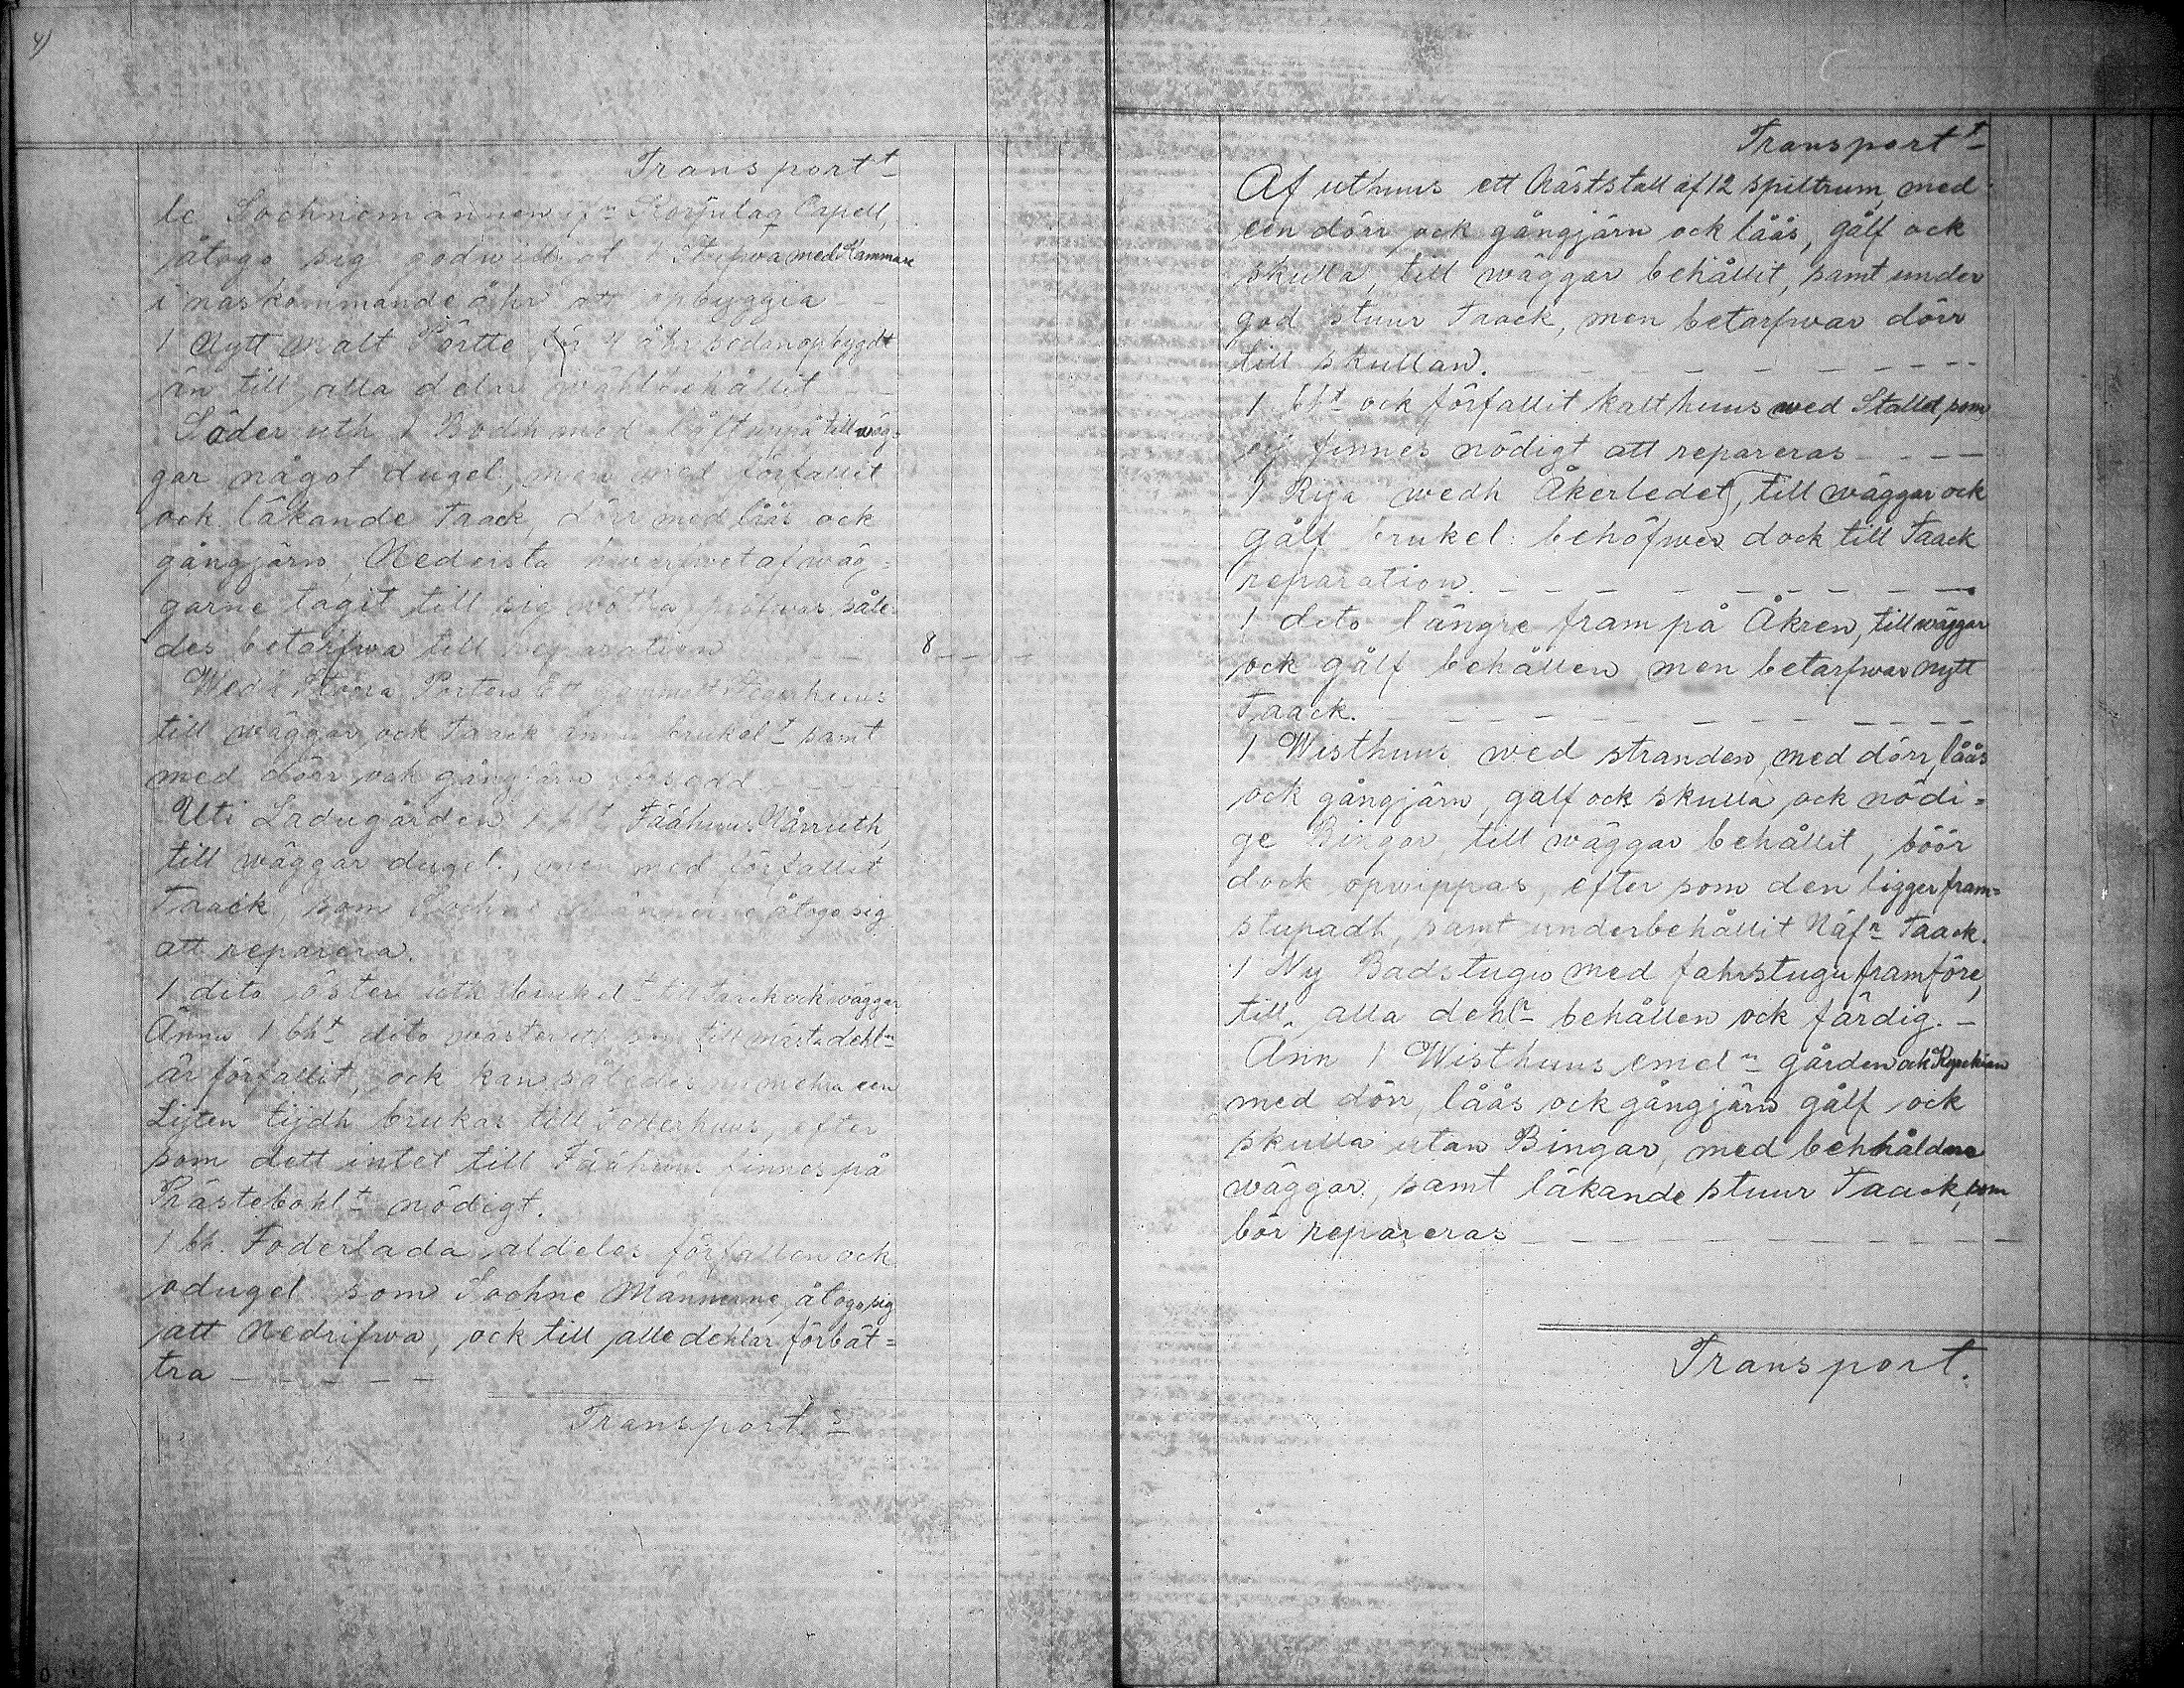 4)
Transport t
le Sochnemännen if n Korpulaq Capell,
åtogo sig godwill. at 1 Stufwa med Kammare
i näskommande åhr att opbyggia - -
1 Nytt Malt Pörtte för 4 åhr sedan opbygdt
än till alla delar wählbehållit - -
Söder uth 1 Bodh med låft uppå till wäg=
gar något dugel., men med förfallit
ock läkande Taack, dörr med låås ock
gångjärn, Nedersta hwarfwet af wäg=
garne tagit till sig rötha, pröfwas såle-
des betarfwa till reparation - - - 8 - -
Wedh Stoora Porten Ett gammalt Wågnhuus
till wäggar ock Taack ännu brukel t samt
med dörr ock gångjärn försedd - - -
Uti Ladugården 1 bh t Fäähuus Nårruth,
till wäggar dugel., men med förfallit
Taack, som Sochne Männerne åtogo sig
att reparera.
1 dito öster uth brukel t till Taack ock wäggar
Ännu 1 bh t dito wäster uth som till mästa dehl n
är förfallit, ock kan således nu mehra een
Lijten tijdh brukas till Foderhuus, efter
som dett intet till Fäähuus finnes på
Prästebohl t nödigt.
1 bh. Foderlada aldeles förfallen ock
odugel. som Sochne Männerne åtogo sig
att Nedrifwa, ock till alle dehlar förbät=
tra - - - - -
Transport s
Transport t
Af uthuus ett Häststall af 12 spiltrum, med
een dörr ock gångjärn ock låås, gålf ock
skulla, till wäggar behållit, samt under
god stuur Taack, men betarfwar dörr
till skullan. - - - - - - - -
1 bh t ock förfallit kalthuus wed Stallet, som
eij finnes nödigt att repareras - - - -
1 Rija wedh Åkerledet, till wäggar ock
gålf brukel: behöfwer dock till Taack
reparation. - - - - - - - -
1 dito längre fram på Åkren, till wäggar
ock gålf behållen men betarfwar nytt
Taack. - - - - - - - - - -
1 Wisthuus wed stranden, med dörr, låås
ock gångjärn, galf ock skulla ock nödi=
ge Bingar, till wäggar behållit, böör
dock opwippas, efter som den ligger fram=
stupadh, samt underbehållit Näf n Taack.
1 Ny Badstugu med fahrstugu framföre,
till alla dehl r behållen ock färdig. -
Änn 1 Wisthuus emel n gården ock Kyrckian
med dörr, låås ock gångjärn gålf ock
skulla utan Bingar, med behhåldne
wäggar, samt läkande stuur Taack, som
bör repareras - - - - - - - - -
Transport.